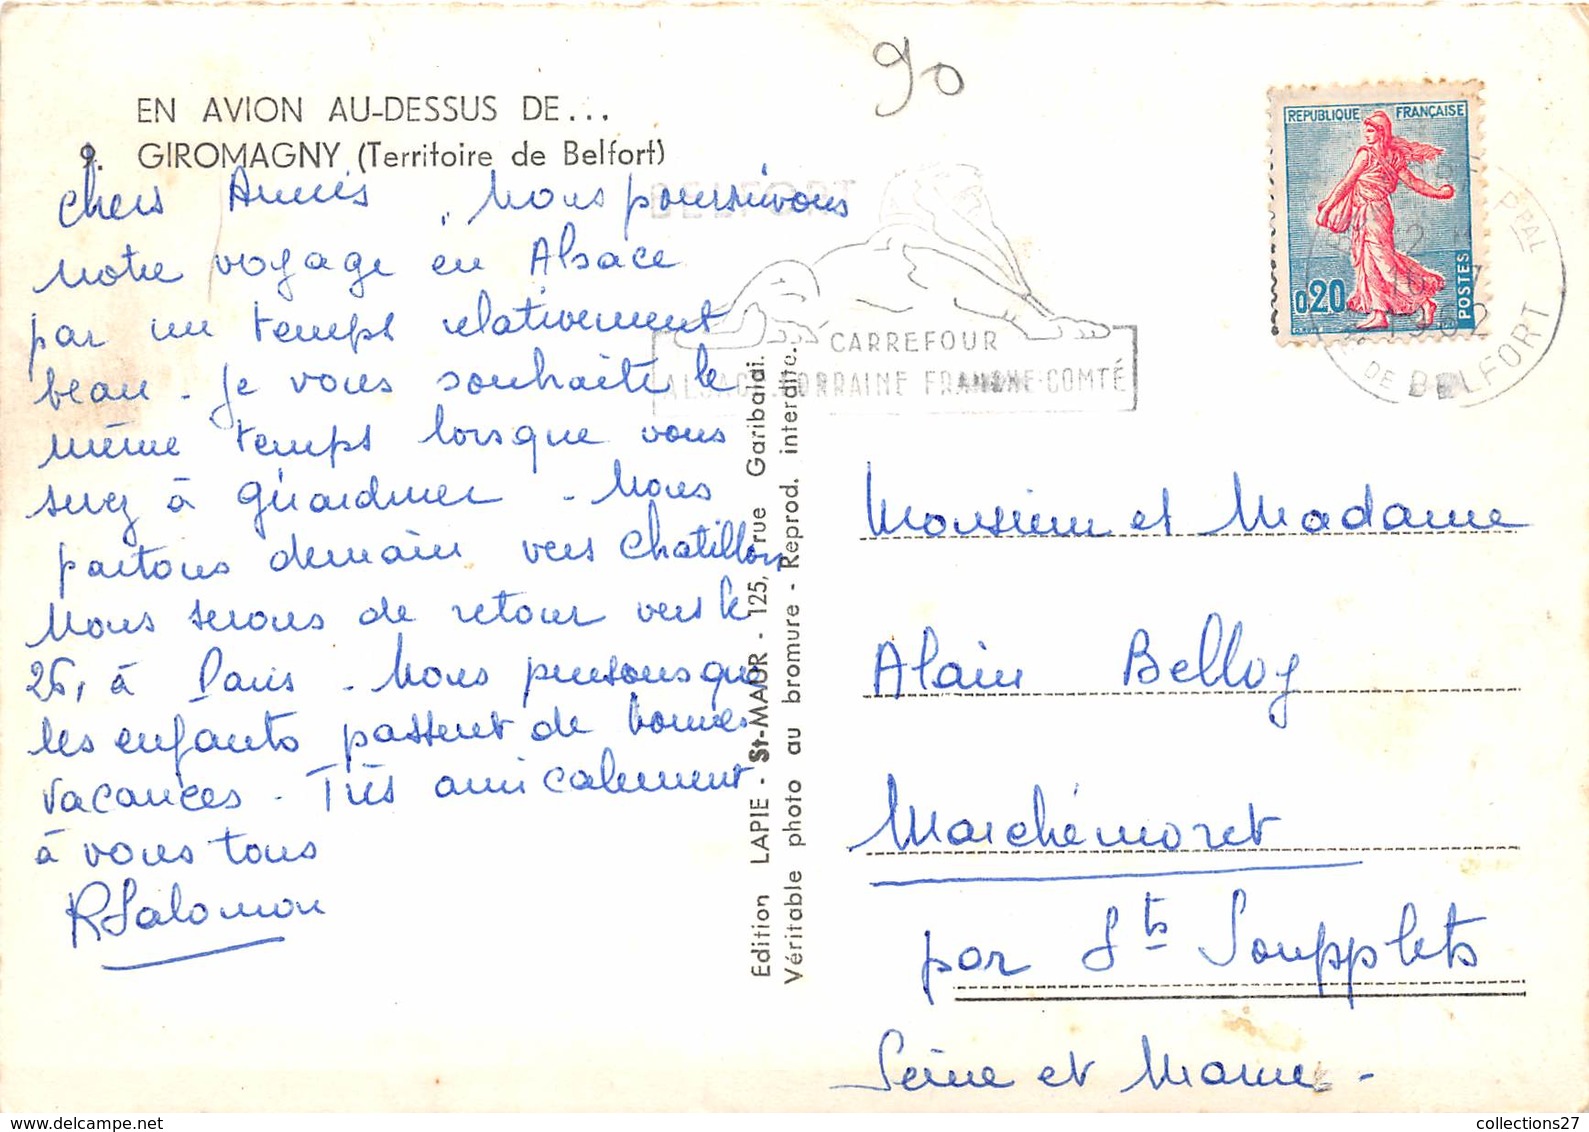 90
EN AVION AU-DESSUS DE...
9. GIROMAGNY (Territoire de Belfort)
Chers Amis, Nous poursuivons
notre voyage en Alsace
par un temps relativement
beau - Je vous souhaite le
même temps lorsque vous
serez à Gérardmer - Nous
partons demain vers Chatillon
Nous serons de retour vers le
26, à Paris - Nous pensons que
les enfants passent de bonnes
vacances - Très amicalement
à vous tous
RSalomon
Edition LAPIE - St-MAUR - 125, rue Garibaldi.
Véritable photo au bromure - Reprod. interdite.
BELFORT
CARREFOUR
ALSACE-LORRAINE FRANCHE-COMTÉ
REPUBLIQUE FRANÇAISE
0,20
POSTES
PPAL
1962
DE BELFORT
Monsieur et Madame
Alain Belloy
Marchémoret
par Sts Soupplets
Seine et Marne -
collections27